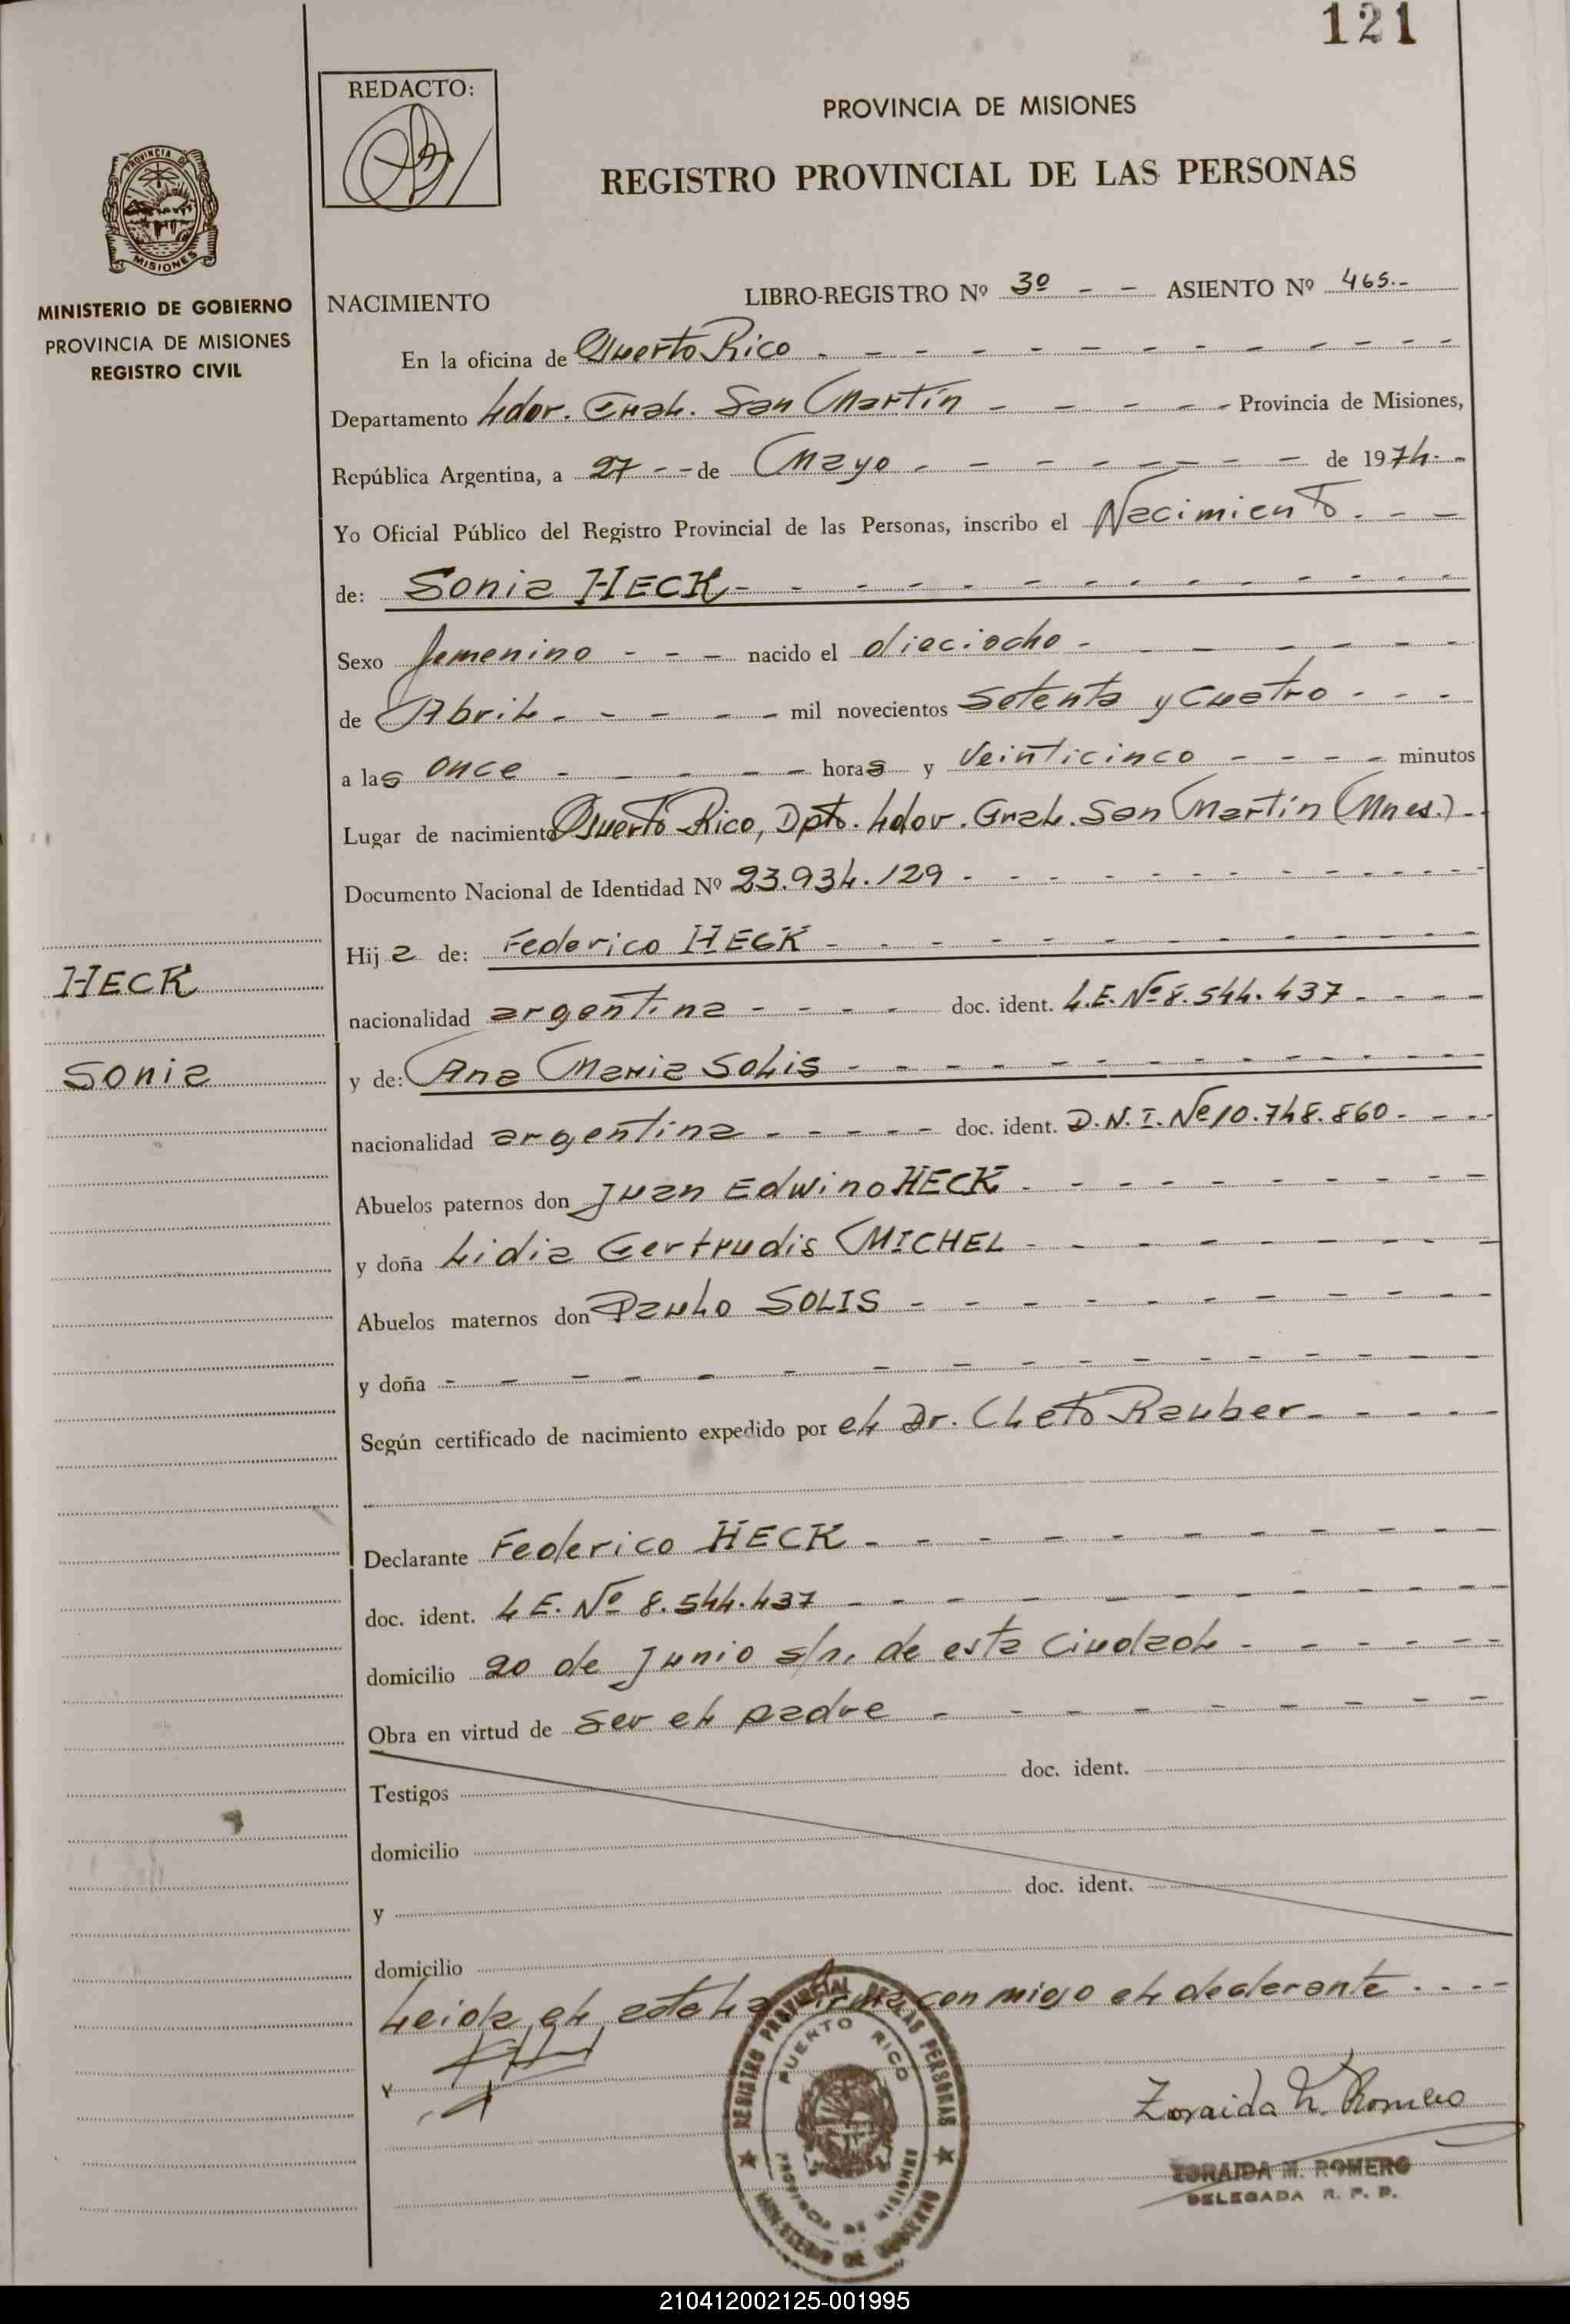 121
REDACTO:
PROVINCIA DE MISIONES
REGISTRO PROVINCIAL DE LAS PERSONAS
PROVINCIA DE
MISIONES
MINISTERIO DE GOBIERNO
PROVINCIA DE MISIONES
REGISTRO CIVIL
NACIMIENTO LIBRO-REGISTRO Nº 3º - - ASIENTO Nº 465.-
En la oficina de Puerto Rico - - - - - - - - - - - -
Departamento Ldor. Gral. San Martín - - - - - Provincia de Misiones,
República Argentina, a 27 - - de Mayo - - - - - - - - de 1974.-
Yo Oficial Público del Registro Provincial de las Personas, inscribo el Nacimiento. - -
de: Sonia HECK - - - - - - - - - - - - - -
Sexo femenino - - - nacido el dieciocho - - - - - - -
de Abril - - - - - mil novecientos Setenta y Cuatro - - -
a las once - - - - - - horas y Veinticinco - - - - minutos
Lugar de nacimiento Puerto Rico, Dpto. Ldor. Gral. San Martín (Mnes.) - -
Documento Nacional de Identidad Nº 23.934.129 - - - - - - - - - - -
Hija de: Federico HECK - - - - - - - - - - - -
HECK
nacionalidad argentina - - - - - doc. ident. L.E. Nº 8.544.437 - - - -
Sonia
y de: Ana Maria Solis - - - - - - - - - - - - -
nacionalidad argentina - - - - - doc. ident. D.N.I. Nº 10.748.860 - - - -
Abuelos paternos don Juan Edwino HECK - - - - - - - - -
y doña Lidia Gertrudis MICHEL - - - - - - - - -
Abuelos maternos don Paulo SOLIS - - - - - - - - - -
y doña - - - - - - - - - - - - - - -
Según certificado de nacimiento expedido por el Dr. Cleto Rauber - - - - -
Declarante Federico HECK - - - - - - - - - -
doc. ident. L E. Nº 8.544.437 - - - - - - - - - - -
domicilio 20 de Junio s/n. de esta Ciudad - - - - - -
Obra en virtud de Ser el padre - - - - - - - - -
Testigos doc. ident.
domicilio
y doc. ident.
domicilio
Leida el acta la firma conmigo el declarante - - - -
REGISTRO PROVINCIAL DE LAS PERSONAS
PUERTO RICO
PROVINCIA DE MISIONES
MINISTERIO DE GOBIERNO
Zoraida M. Romero
ZORAIDA M. ROMERO
DELEGADA R. P. P.
210412002125-001995